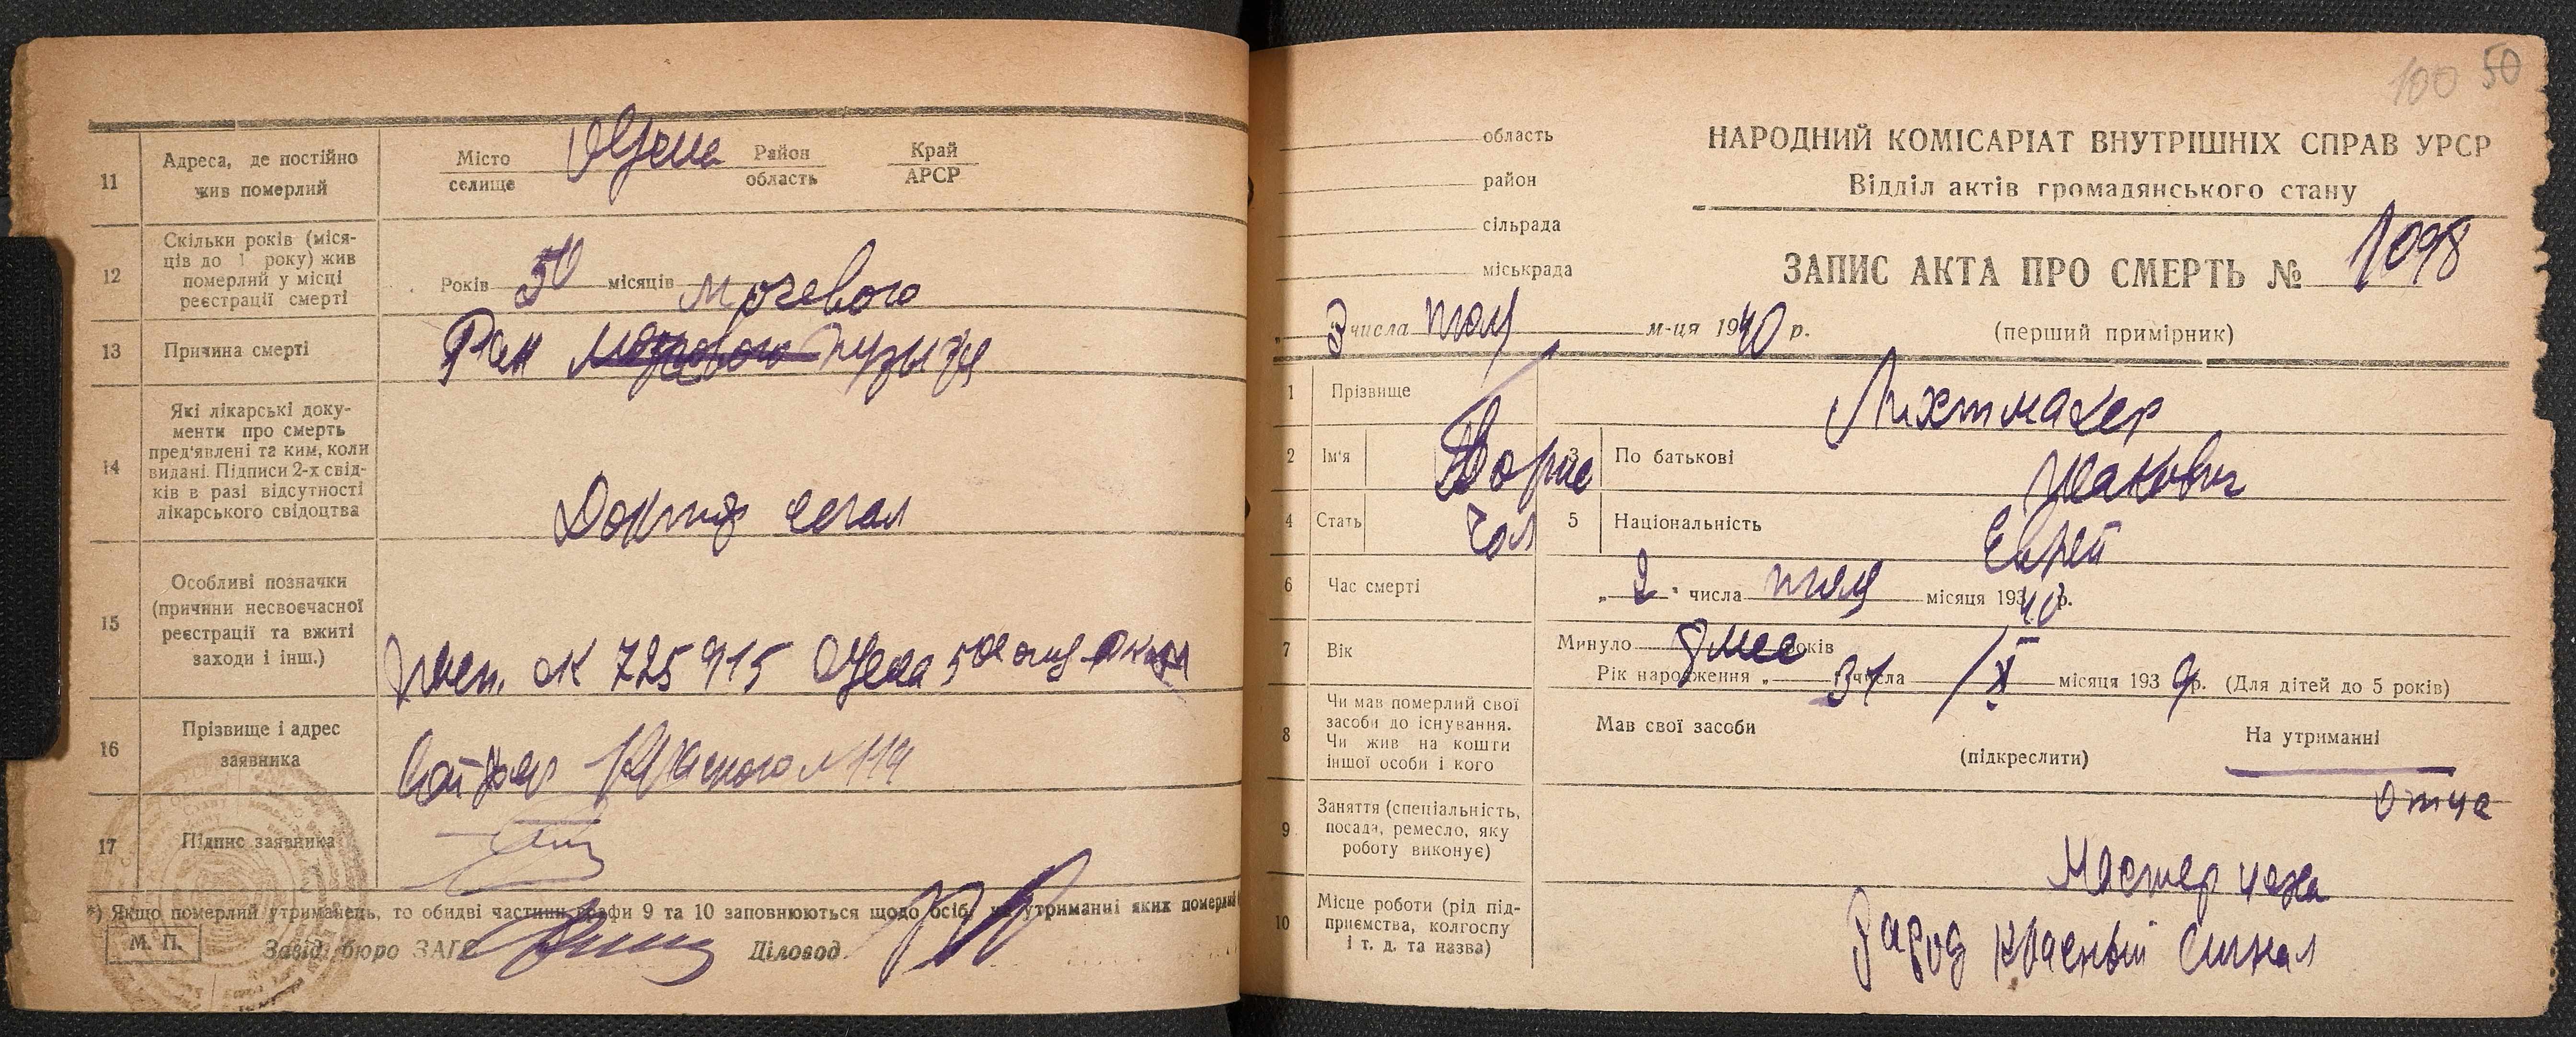 11 Адреса, де постійно жив померлий
Місто селище Одеса Район область Край АРСР
12 Скільки років (міся-
ців до 1 року) жив
померлий у місці
реєстрації смерті
Років місяців
мочевого
13 Причина смерті
Рак пузыря
14 Які лікарські доку-
менти про смерть
пред'явлені та ким, коли
видані. Підписи 2-х свід-
ків в разі відсутності
лікарського свідоцтва
Доктор Сегал
15 Особливі позначки
(причини несвоєчасної
реєстрації та вжиті
заходи і інш.)
725915
16 Прізвище і адрес
заявника
17 Підпис заявника
*) Якщо померлий утриманець, то обидві частини графи 9 та 10 заповнюються щодо осіб, на утриманні яких померлий
М. П. Завід. бюро ЗАГС Діловод.
100 50
область
район
сільрада
міськрада
НАРОДНИЙ КОМІСАРІАТ ВНУТРІШНІХ СПРАВ УРСР
Відділ актів громадянського стану
ЗАПИС АКТА ПРО СМЕРТЬ № 1098
„3 числа июля м-ця 1940 р.
(перший примірник)
1 Прізвище Лихтмахер
2 Ім'я Борис 3 По батькові Исакович
4 Стать Чол 5 Національність Еврей
6 Час смерті „2" числа июля місяця 19340р.
7 Вік Минуло 8 мес років
Рік народження „31 числа X місяця 1939р. (Для дітей до 5 років)
8 Чи мав померлий свої
засоби до існування.
Чи жив на кошти
іншої особи і кого
Мав свої засоби
(підкреслити)
На утриманні
отца
9 Заняття (спеціальність,
посада, ремесло, яку
роботу виконує)
Мастер цеха
10 Місце роботи (рід під-
приємства, колгоспу
і т. д. та назва)
Завод Красный Сигнал